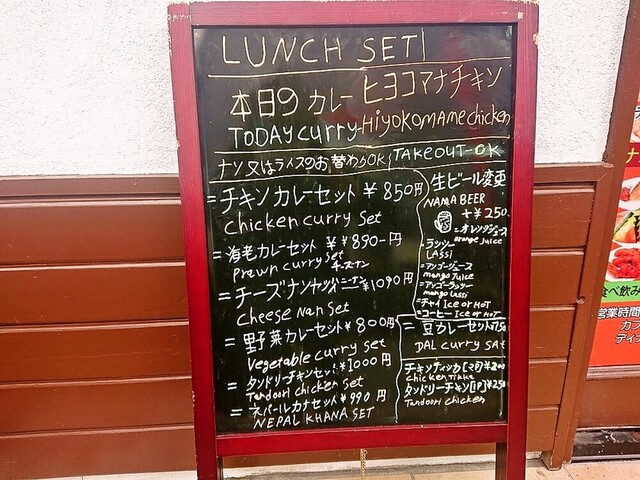 LUNCH SET
本日9 カレー ヒヨコマナチキン
TODAY curry-HiyokomAme chicken
ナン又はライスのお替わりOK TAKEOUT-OK
=チキンカレーセット ¥850円
chicken curry set
=海老カレーセット ¥¥890-円
prewn curry set
チーズナン
¥1090円
cheese Nan set
=野菜カレーセット¥800円
Vegetable curry set
=タンドリーチキンセット¥1000円
Tandoori chicken set
=ネパールカナセット¥990円
NEPAL KHANA SET
生ビール変更
NAMA BEER
+¥250
=オレンジジュース
orange Juice
=ラッシー
LASSI
=マンゴージュース
mango Juice
=マンゴーラッシー
mango lassi
=チャイ Ice or HOT
=コーヒー Ice or HOT
=豆カレーセット
DAL curry SAt
チキンティッカ
chicken Tikka
タンドリーチキン[1P]¥250
Tandoori chicken
食べ飲み
営業時間
カフ
ディ